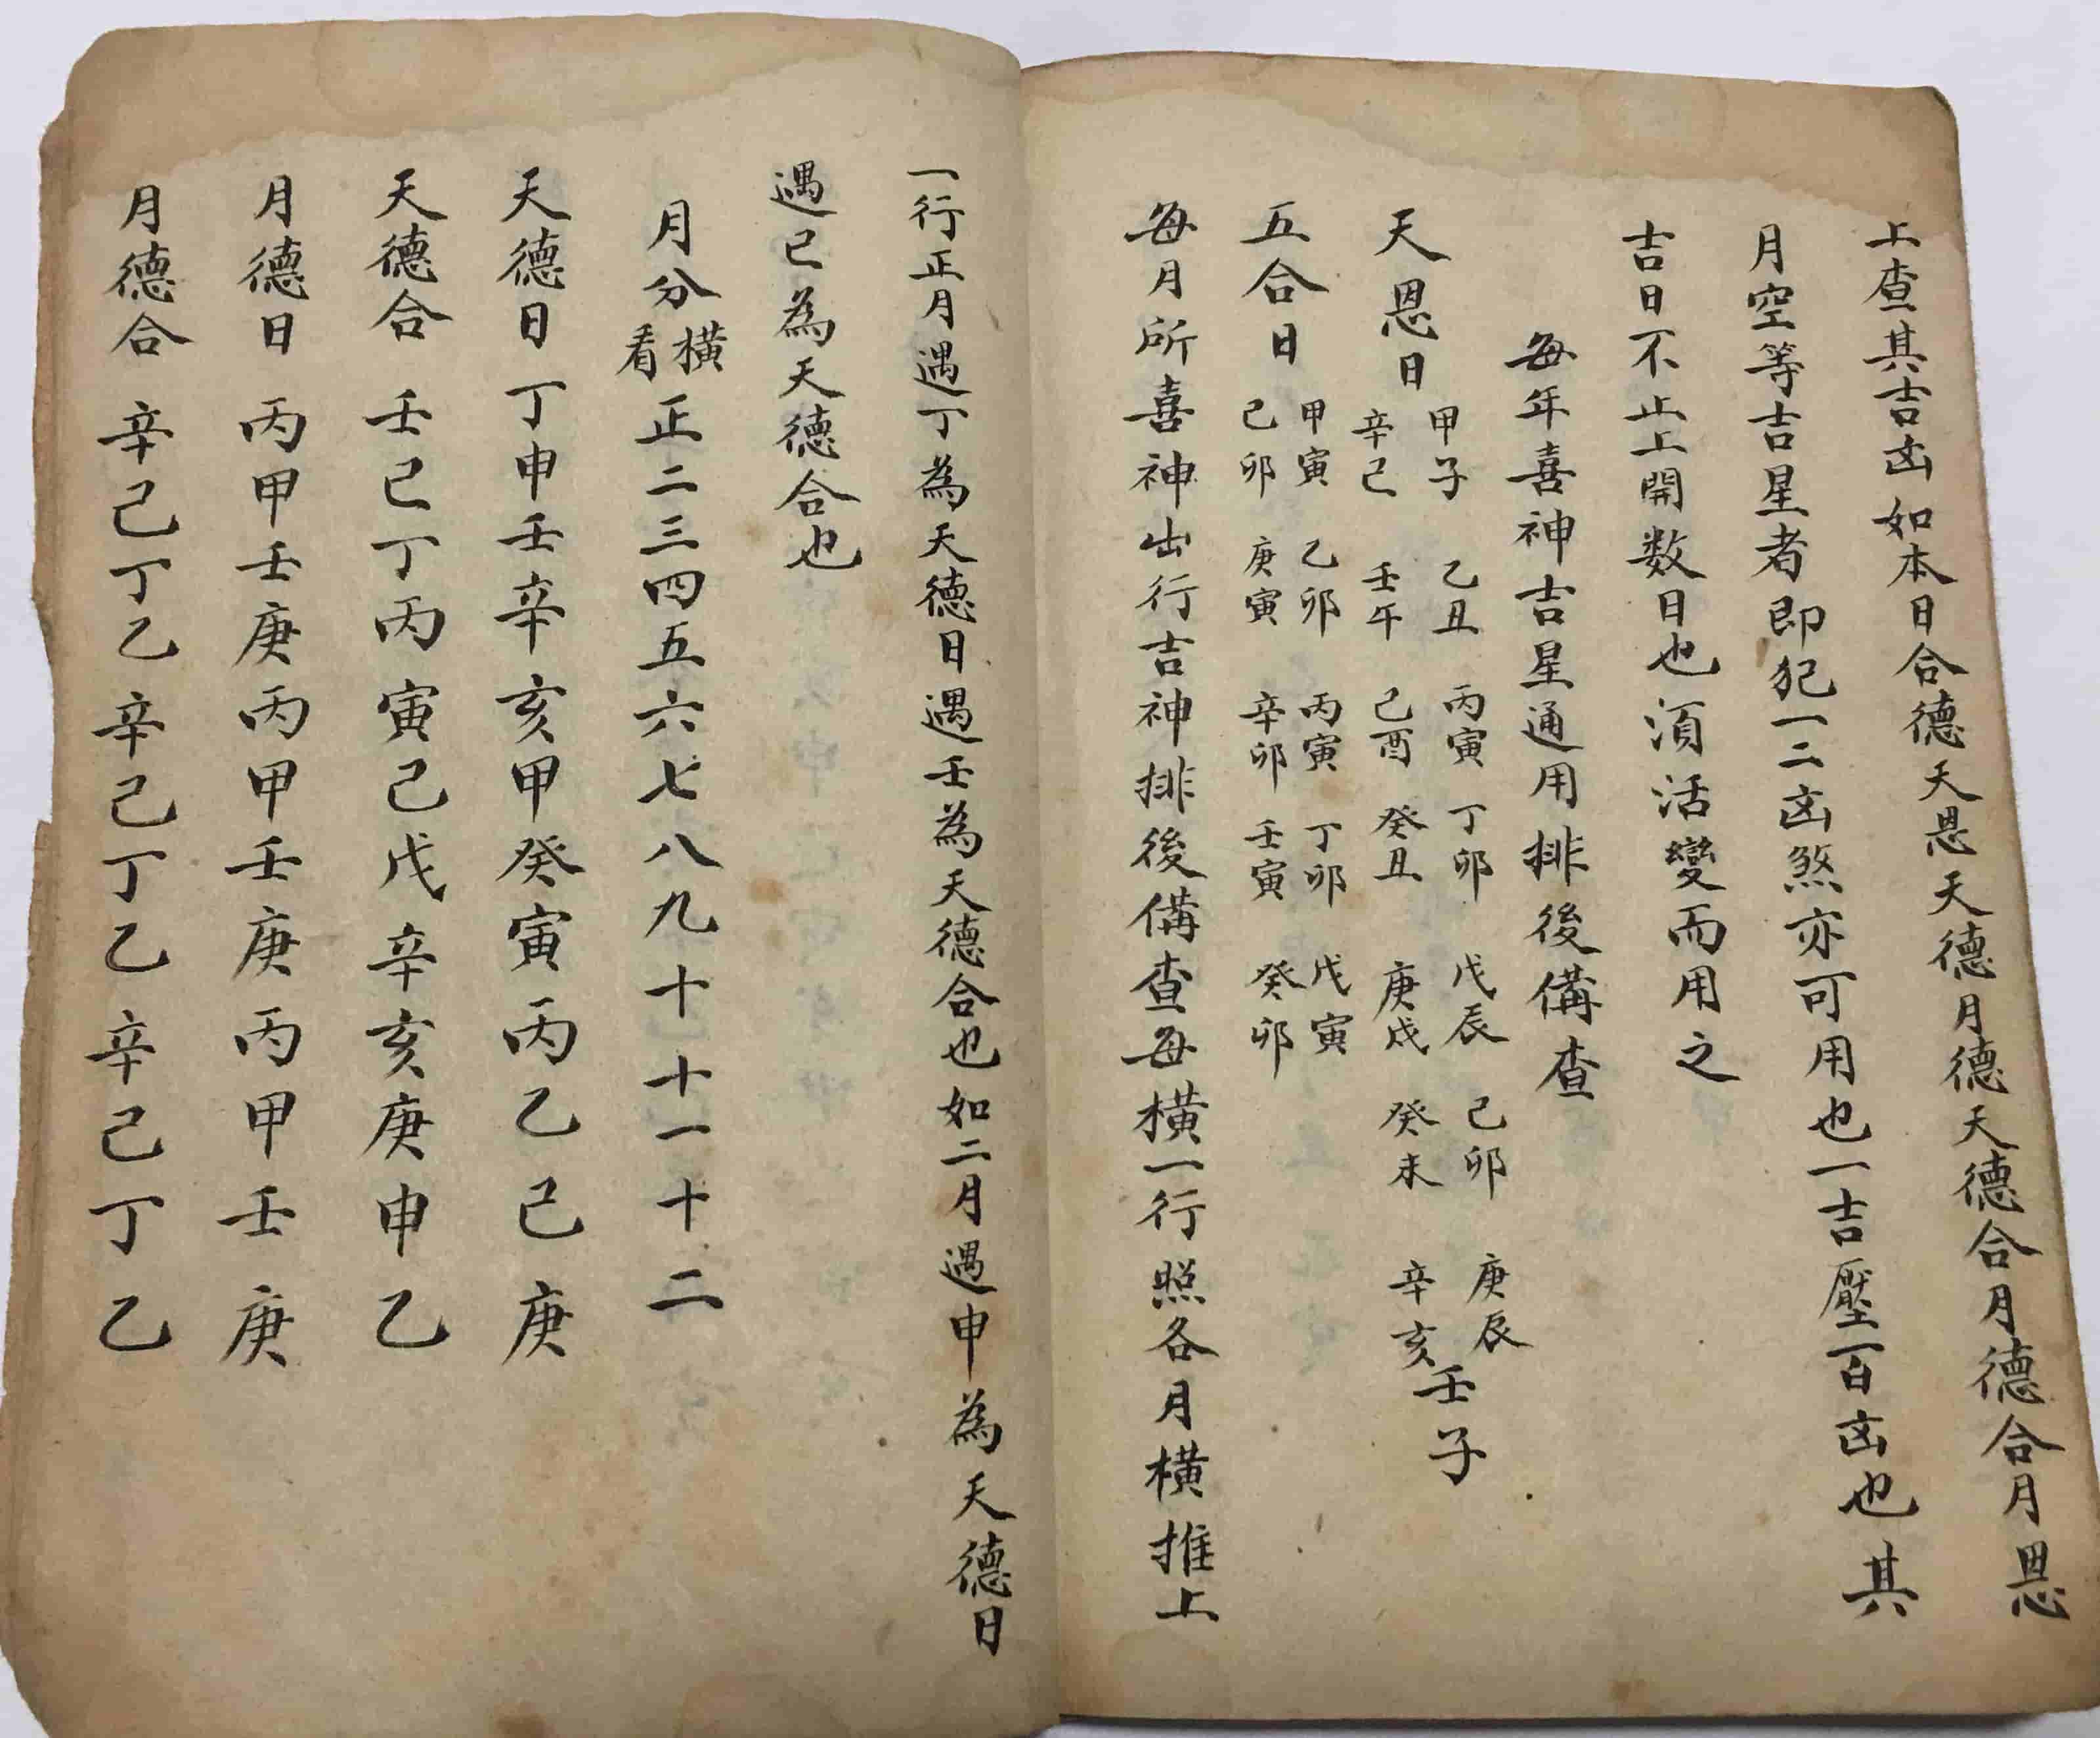 上查其吉凶如本日合德天恩天德月德天德合月德合月恩
月空等吉星者即犯一二凶煞亦可用也一吉壓百凶也其
吉日不止上開数日也須活變而用之
每年喜神吉星通用排後備查
天恩日
甲子 乙丑 丙寅 丁卯 戊辰 己卯 庚辰
辛巳 壬午 己酉 癸丑 庚戌 癸未 辛亥
壬子
五合日
甲寅 乙卯 丙寅 丁卯 戊寅
己卯 庚寅 辛卯 壬寅 癸卯
每月所喜神出行吉神排後備查每橫一行照各月橫推上
一行正月遇丁為天德日遇壬為天德合也如二月遇申為天德日
遇巳為天德合也
月分橫看正二三四五六七八九十十一十二
天德日丁申壬辛亥甲癸寅丙乙己庚
天德合壬巳丁丙寅己戊辛亥庚申乙
月德日丙甲壬庚丙甲壬庚丙甲壬庚
月德合辛己丁乙辛己丁乙辛己丁乙